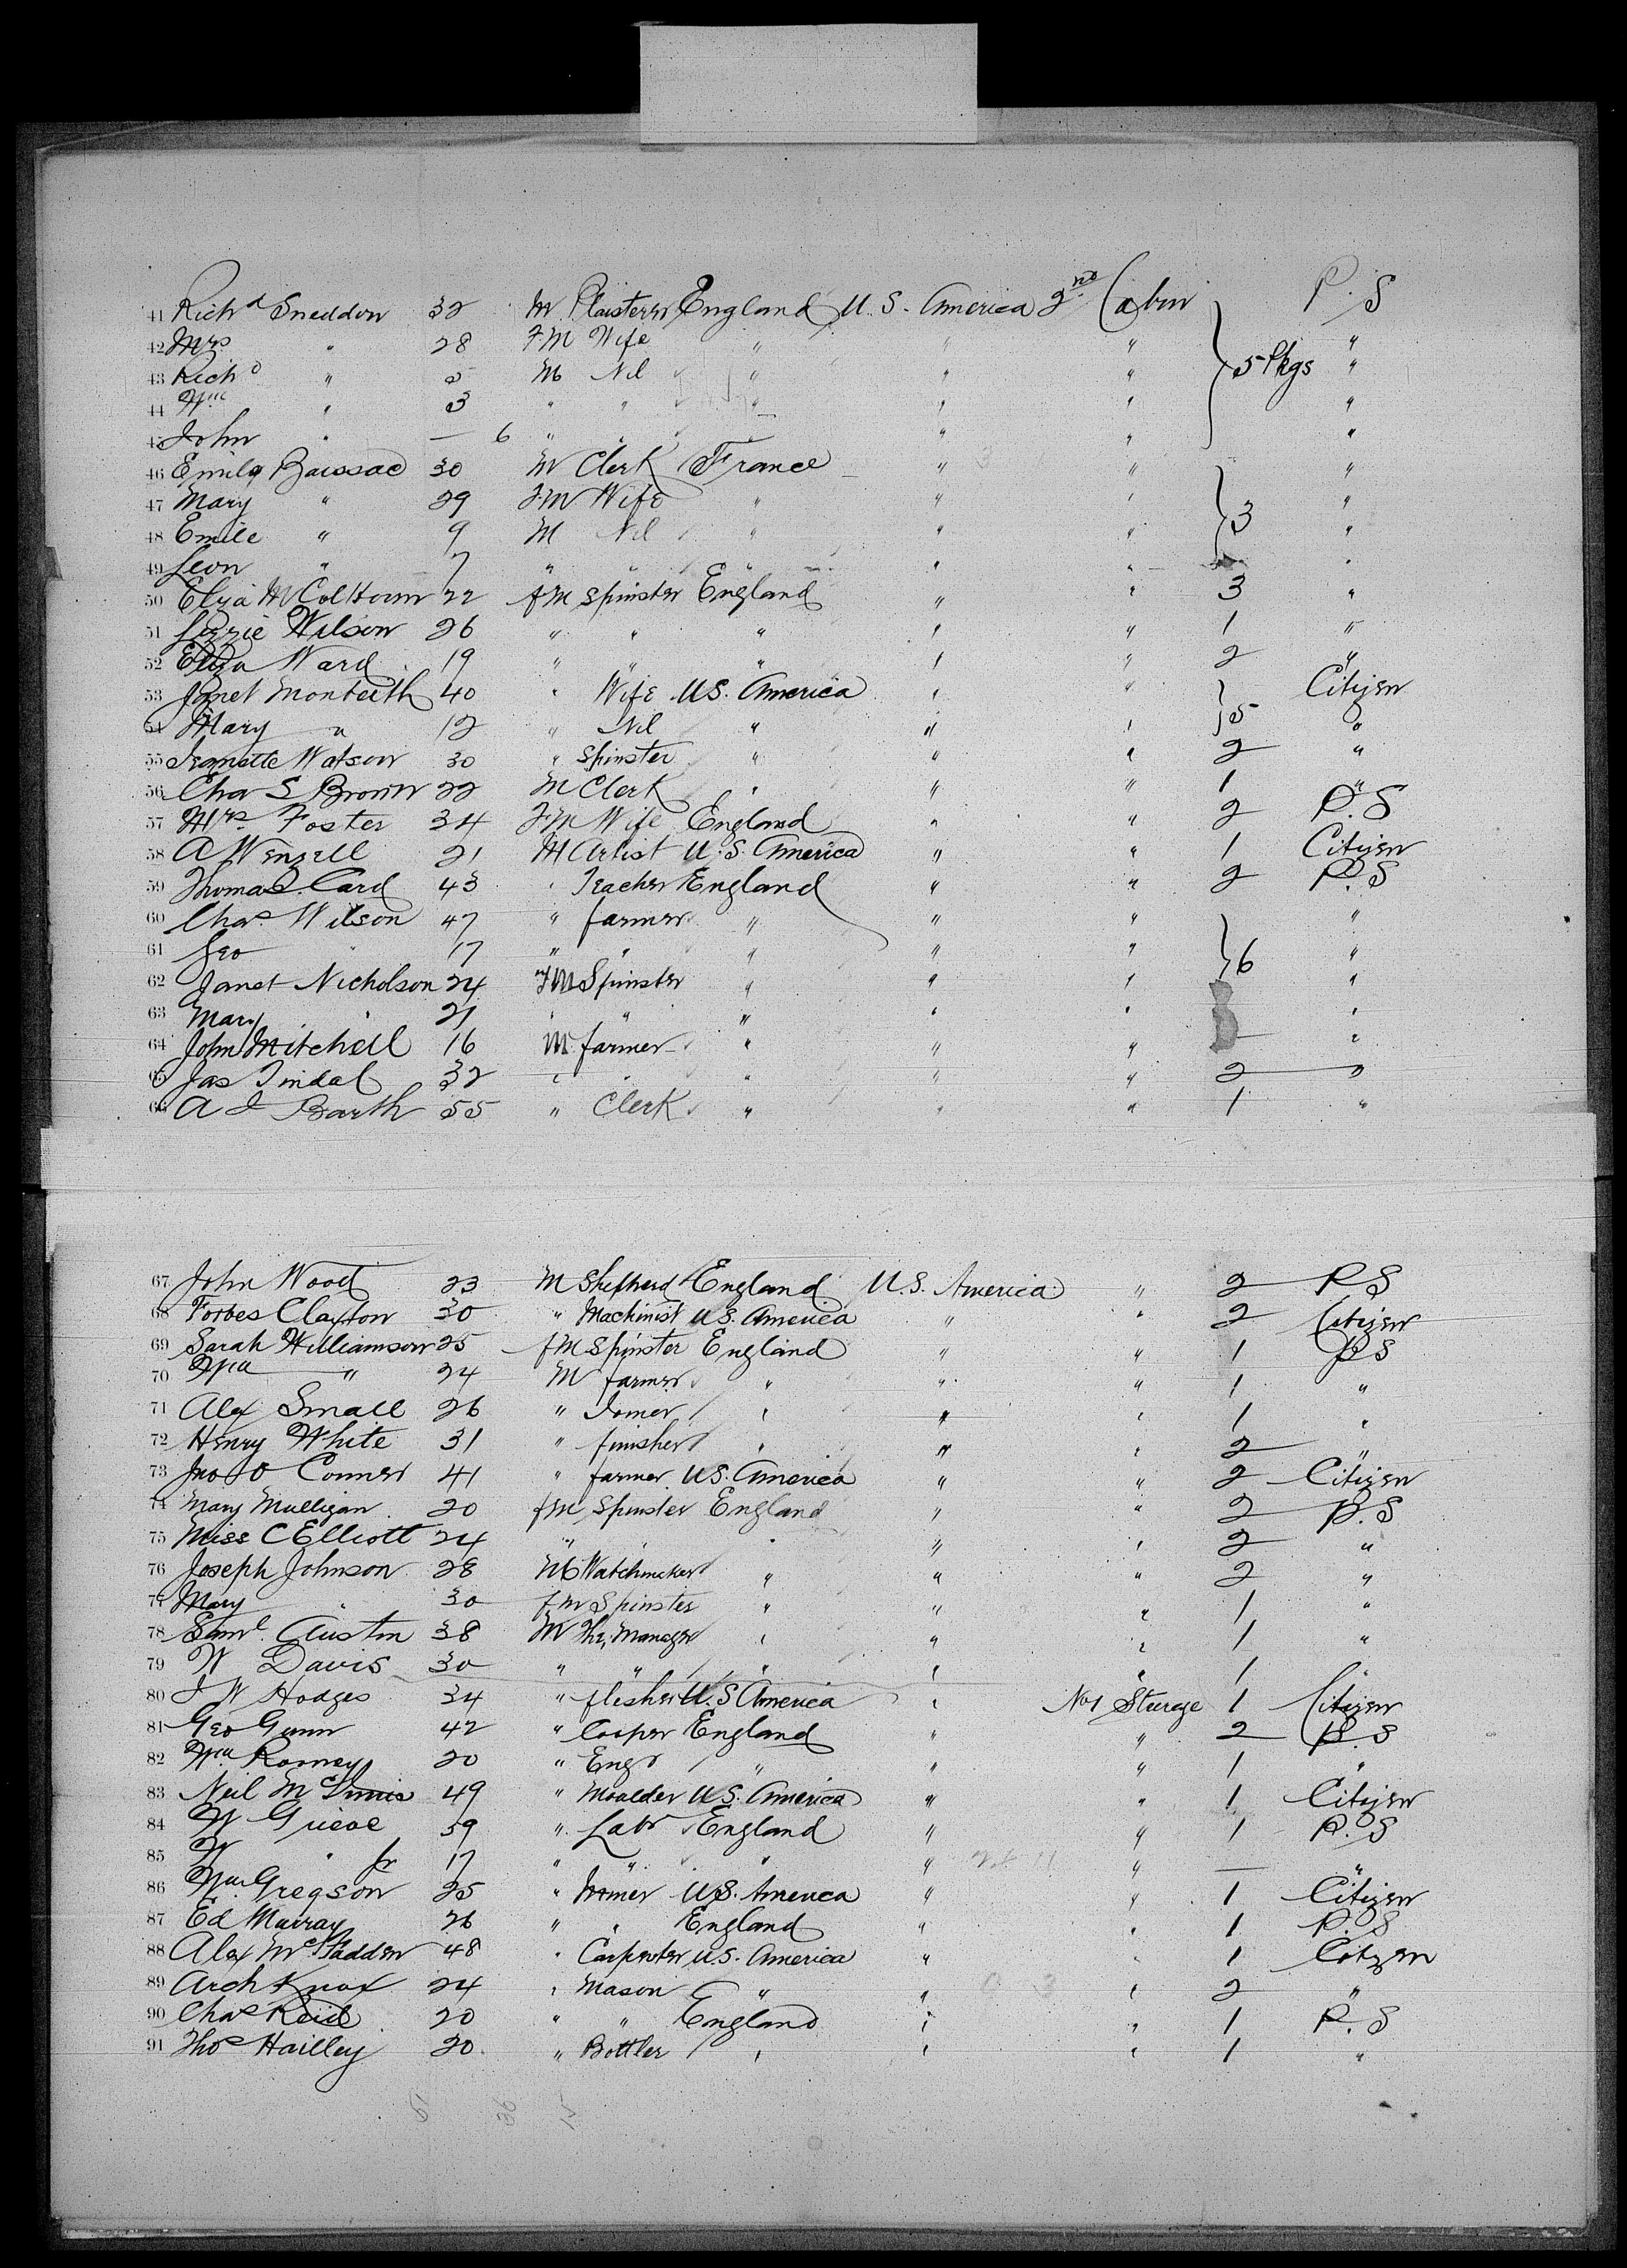 41 Richd Sneddon 32 M Plaisterer England U.S. America 2nd Cabin P.S
42 Mrs " 28 FM Wife " " " "
43 Richd " 5 M Nil " " " 5 Pkgs "
44 Wm " 3 " " " " " "
45 John " — 6 " " " " " "
46 Emile Baissac 30 M Clerk France " " "
47 Mary " 29 FM Wife " " " "
48 Emile " 9 M Nil " " " 3 "
49 Leon " 7 " " " " " "
50 Eliza McColhoun 22 fM Spinster England " " 3 "
51 Lizzie Wilson 26 " " " " " 1 "
52 Eliza Ward 19 " " " " " 2 "
53 Janet Monteith 40 " Wife U.S. America " " Citizen
54 Mary " 12 " Nil " " " 5 "
55 Jeanette Watson 30 " Spinster " " " 2 "
56 Chas S Brown 22 M Clerk " " " 1 "
57 Mrs Foster 34 FM Wife England " " 2 P.S
58 A Wenzell 21 M Artist U.S. America " " 1 Citizen
59 Thomas Card 43 " Teacher England " " 2 P.S
60 Chas Wilson 47 " farmer " " " "
61 Geo " 17 " " " " " 6 "
62 Janet Nicholson 24 FM Spinster " " " "
63 Mary " 21 " " " " " "
64 John Mitchell 16 M farmer " " " — "
65 Jas Tindal 32 " " " " " 2 "
66 A J Barth 55 " Clerk " " " 1 "
67 John Wood 23 M Shepherd England U.S. America " 2 P.S
68 Forbes Clayton 30 " Machinist U.S. America " " 2 Citizen
69 Sarah Williamson 25 fM Spinster England " " 1 P.S
70 Wm " 24 M farmer " " " 1 "
71 Alex Small 26 " Joiner " " " 1 "
72 Henry White 31 " finisher " " " 2 "
73 Jno O Conner 41 " farmer U.S. America " " 2 Citizen
74 Mary Mulligan 20 fM Spinster England " " 2 P.S
75 Miss C Elliott 24 " " " " " 2 "
76 Joseph Johnson 28 M Watchmaker " " " 2 "
77 Mary " 30 fM Spinster " " " 1 "
78 Saml Austin 38 M Manager " " " 1 "
79 W Davis 30 " " " " " 1 "
80 J W Hodges 34 " flesher U.S America " No1 Steerage 1 Citizen
81 Geo Gunn 42 " Cooper England " " 2 P.S
82 Wm Romey 20 " Engr " " " 1 "
83 Neil McInnis 49 " Moulder U.S. America " " 1 Citizen
84 W Grieve 39 " Labr England " " 1 P.S
85 W " Jr 17 " " " " " — "
86 Wm Gregson 25 " U.S. America " " 1 Citizen
87 Ed Murray 26 " " England " " 1 P.S
88 Alex McFadden 48 " Carpenter U.S. America " " 1 Citizen
89 Arch Knox 24 " Mason " " " 2 "
90 Chas Reid 20 " " England " " 1 P.S
91 Thos Hailley 20 " Bottler " " " 1 "